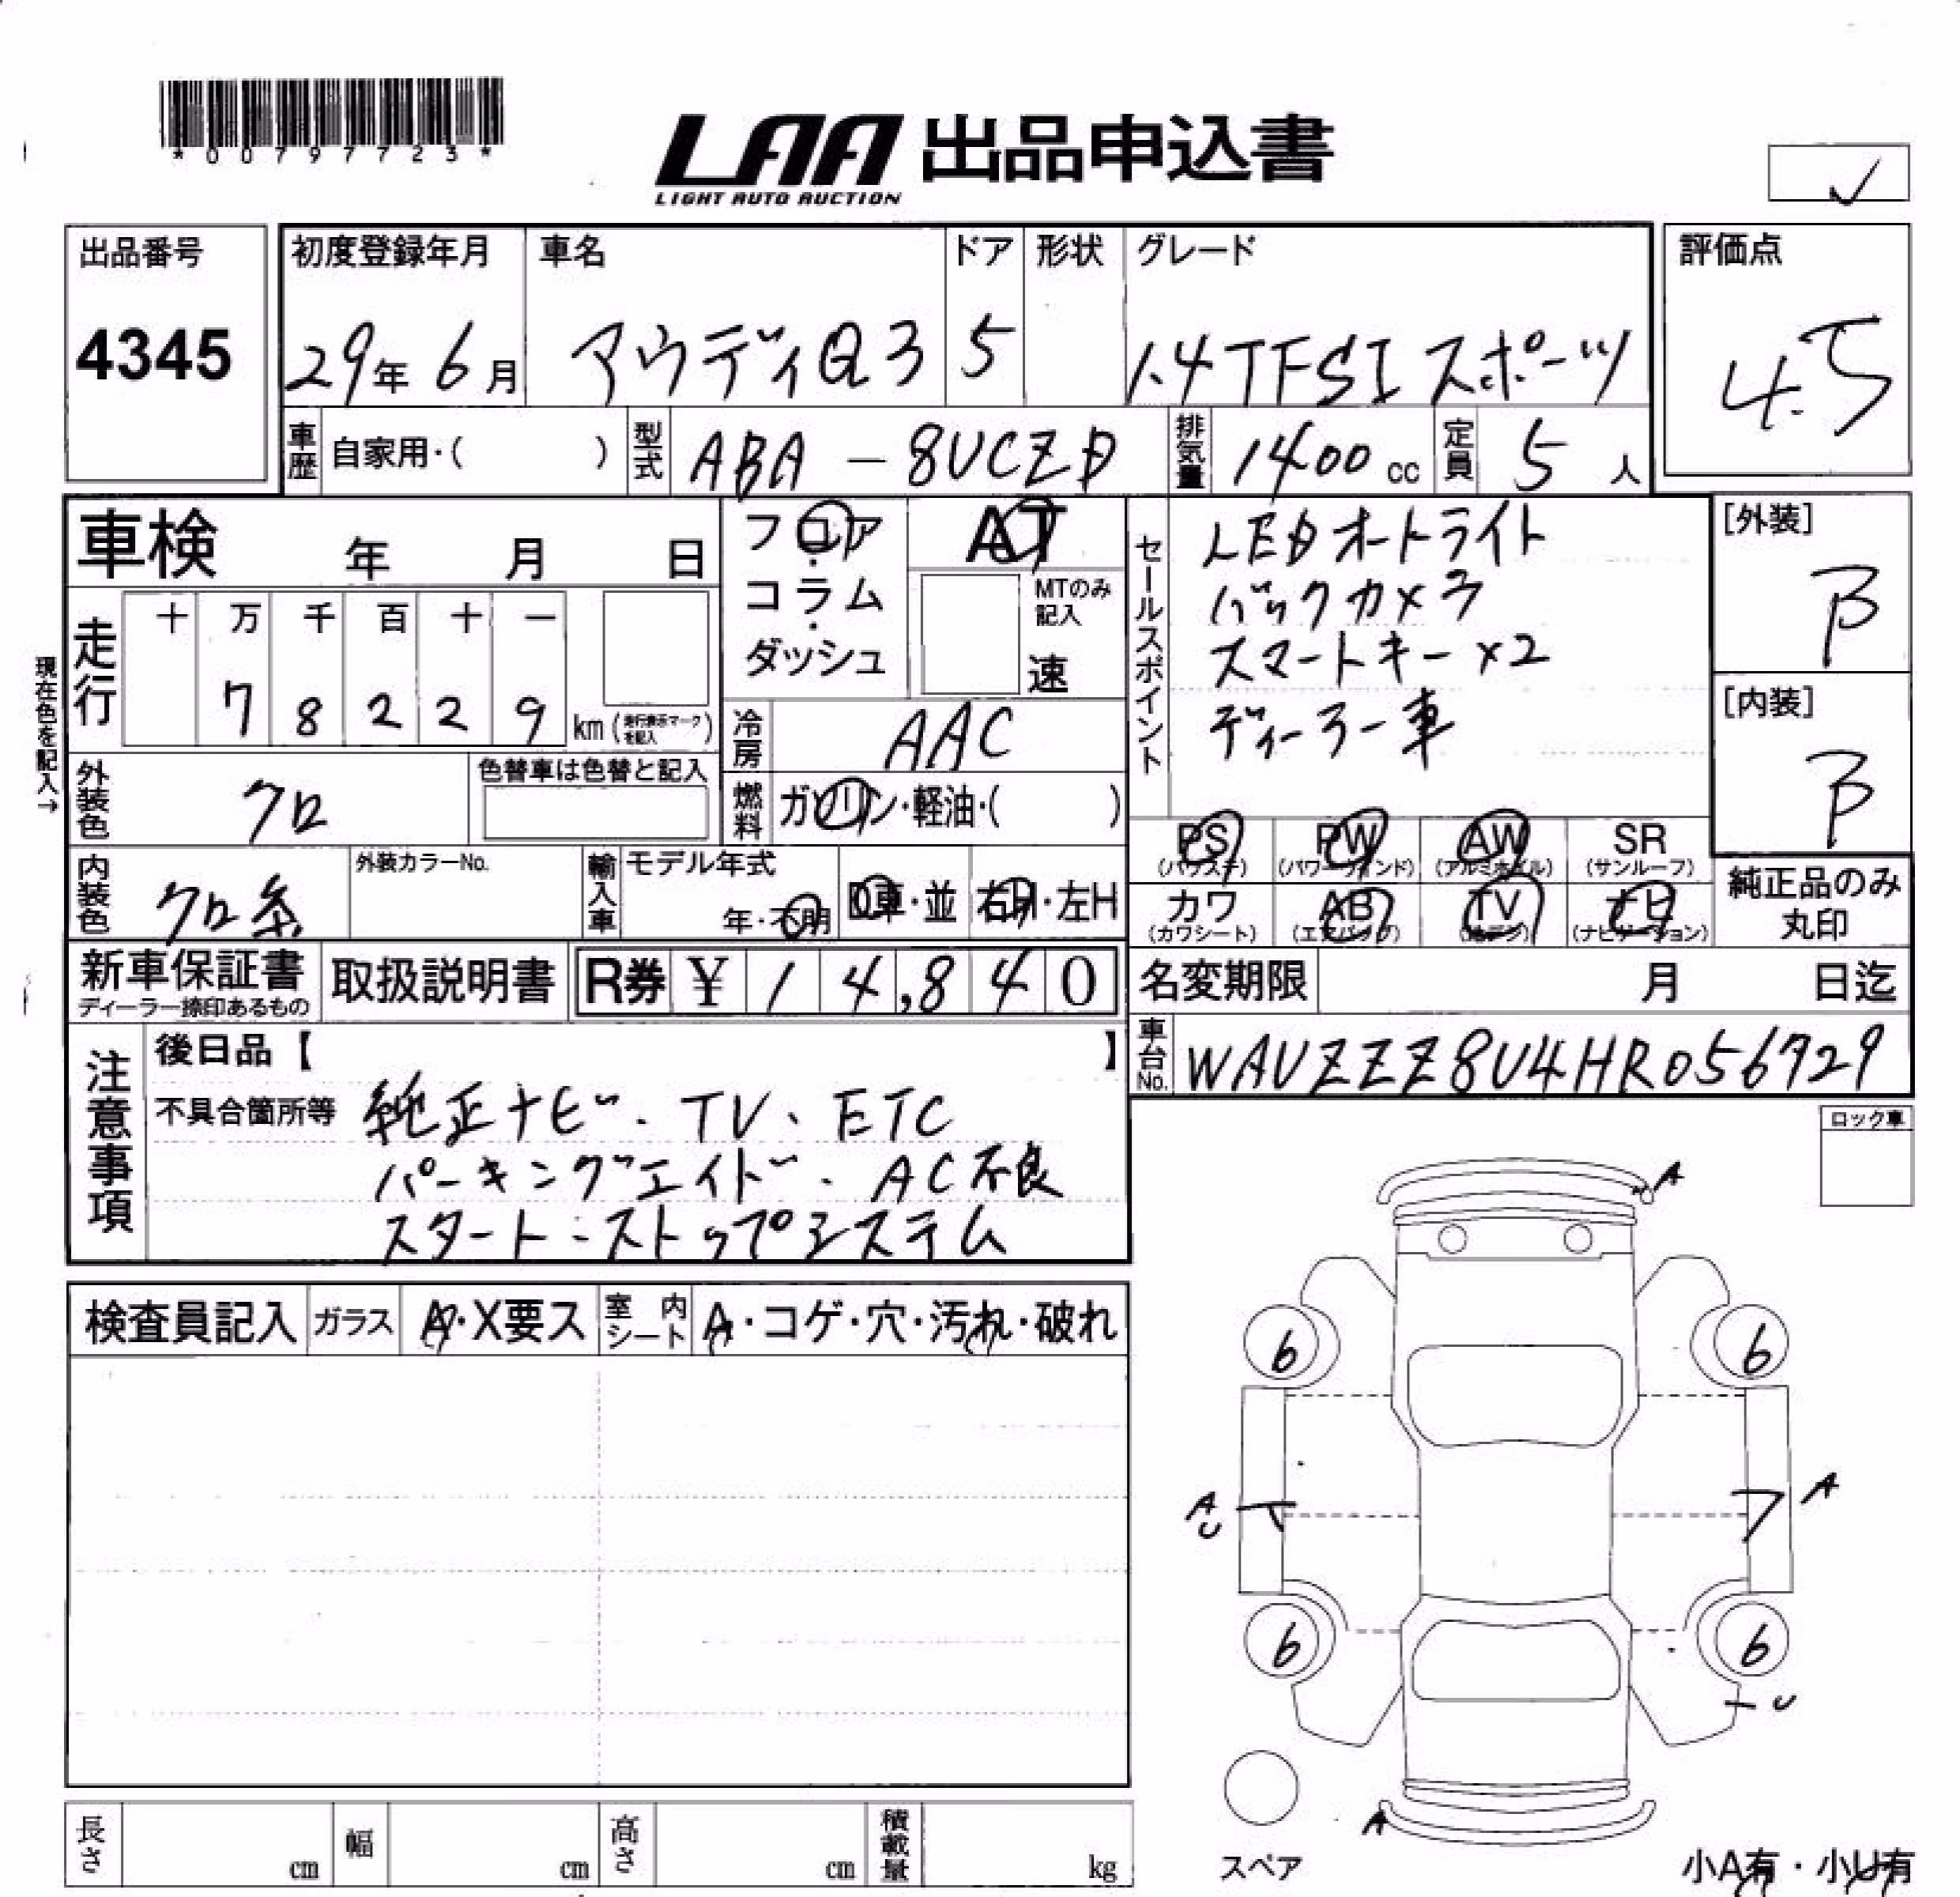 *00797723*
LAA 出品申込書
LIGHT AUTO AUCTION
✓
出品番号
4345
初度登録年月
29年 6月
車名
アウディQ3
ドア
5
形状
グレード
1.4TFSIスポーツ
評価点
4.5
車歴 自家用・( )
型式 ABA-8UCZD
排気量 1400cc
定員 5人
車検 年 月 日
フロア・コラム・ダッシュ
AT
MTのみ記入
速
セールスポイント
LEDオートライト
バックカメラ
スマートキー×2
ディーラー車
[外装]
B
[内装]
B
現在色を記入→
走行
十 万 千 百 十 一
7 8 2 2 9 km (走行表示マークを記入)
冷房 AAC
外装色 クロ
色替車は色替と記入
燃料 ガソリン・軽油・( )
PS (パワステ) PW (パワーウィンド) AW (アルミホイル) SR (サンルーフ)
カワ (カワシート) AB (エアバッグ) TV (地デジ) ナビ (ナビゲーション)
純正品のみ丸印
内装色 クロ系
外装カラーNo.
輸入車 モデル年式
年・不明
D車・並
右H・左H
新車保証書
ディーラー捺印あるもの
取扱説明書
R券 ¥ 1 4,8 4 0
名変期限 月 日迄
車台No. WAUZZZ8U4HR056729
注意事項
後日品【 】
不具合箇所等 純正ナビ、TV、ETC
パーキングエイド、AC不良
スタート・ストップシステム
ロック車
A
検査員記入 ガラス A・X要ス 室内シート A・コゲ・穴・汚れ・破れ
6 6
A
U
A
6 6
U
A
スペア
長さ cm 幅 cm 高さ cm 積載量 kg
小A有・小U有